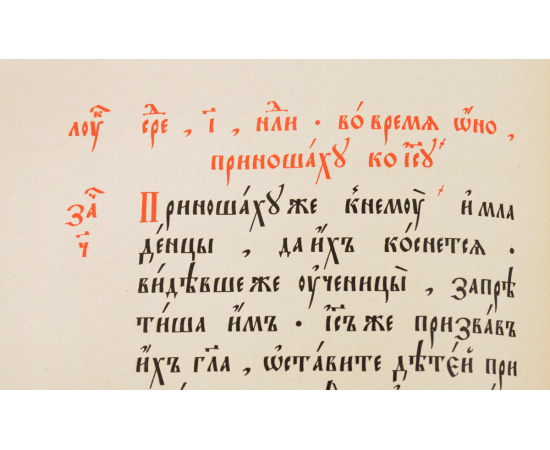 лоук҃
сре҃ , і҃ , нд҃ли · во́ время ѻ҆́но ,
приноша́ху ко і҆с҃у
за҃ч
ч҃
Приноша́ху же к̾немоу̀ и҆ мла
де́нцы , да и҆̀хъ ко́снется ·
ви́дѣвше же оу҆ченицы̀ , запрѣ
ти́ша и҆̀мъ · і҆с҃ъ же призва́въ
и҆̀хъ гл҃а , ѡ҆ста́вите дѣте́й при